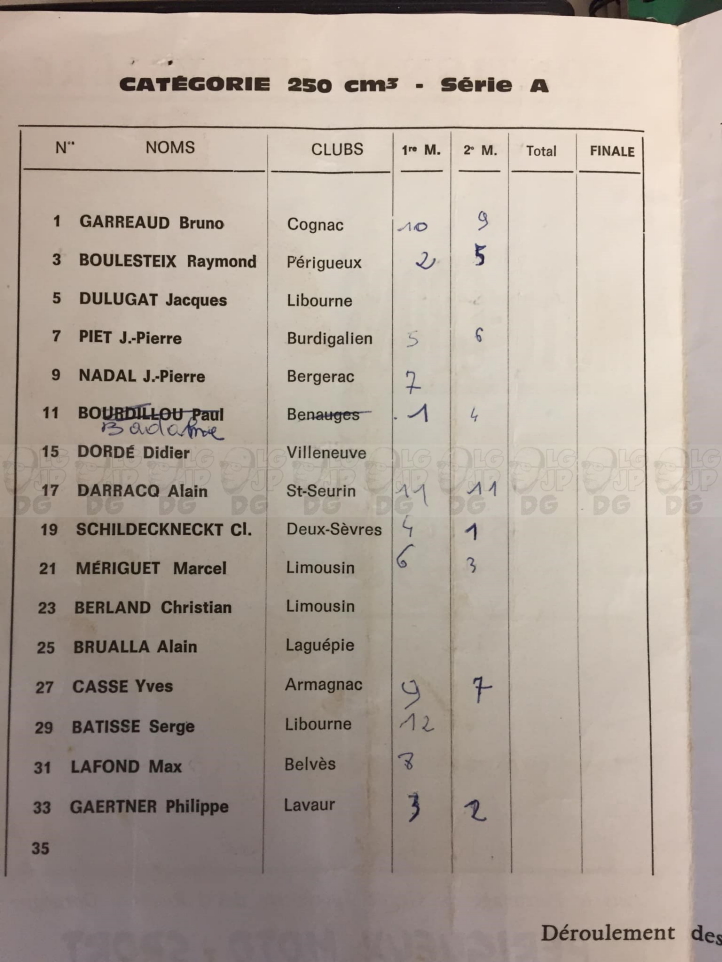 CATÉGORIE 250 cm³ - Série A
N°° NOMS CLUBS 1re M. 2e M. Total FINALE
1 GARREAUD Bruno Cognac 10 9
3 BOULESTEIX Raymond Périgueux 2 5
5 DULUGAT Jacques Libourne
7 PIET J.-Pierre Burdigalien 5 6
9 NADAL J.-Pierre Bergerac 7
11 BOURDILLOU Paul Benauges 1 4
15 DORDÉ Didier Villeneuve
17 DARRACQ Alain St-Seurin 11 11
19 SCHILDECKNECKT Cl. Deux-Sèvres 4 1
21 MÉRIGUET Marcel Limousin 6 3
23 BERLAND Christian Limousin
25 BRUALLA Alain Laguépie
27 CASSE Yves Armagnac 9 7
29 BATISSE Serge Libourne 12
31 LAFOND Max Belvès 8
33 GAERTNER Philippe Lavaur 3 2
35
Déroulement des